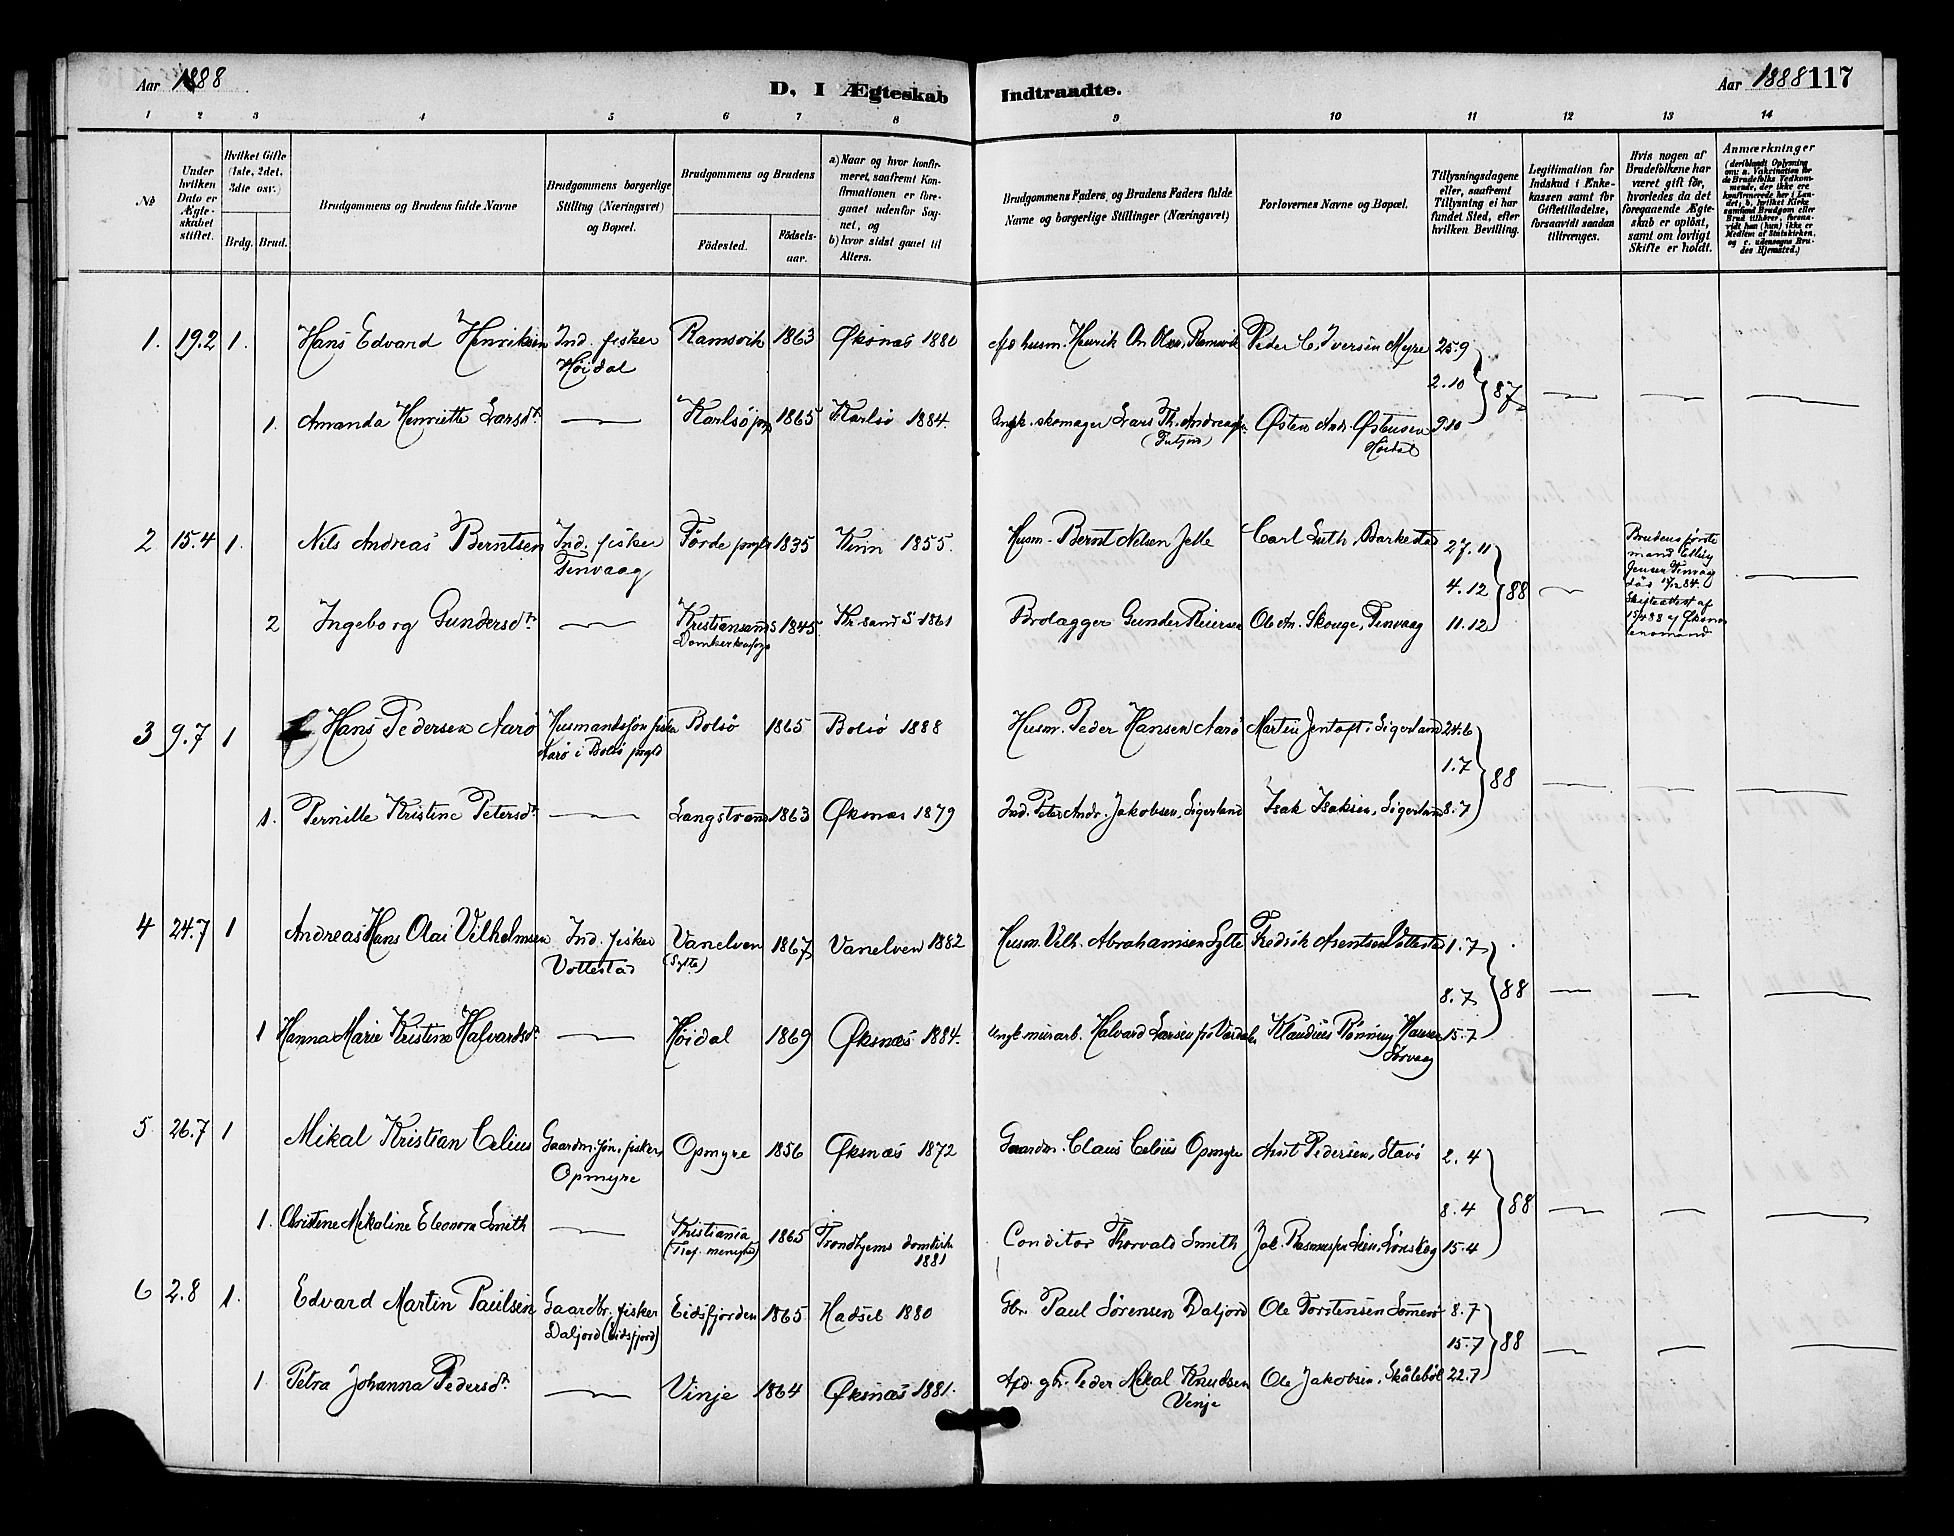 Aar 1888
D, I Ægteskab
Indtraadte.
Aar 1888 117
1 2 3 4 5 6 7 8 9 10 11 12 13 14
No
Under hvilken Dato er Ægteskabet stiftet.
Hvilket Gifte (1ste, 2det, 3die osv.)
Brdg. Brud.
Brudgommens og Brudens fulde Navne
Brudgommens borgerlige Stilling (Næringsvei) og Bopæl.
Brudgommens og Brudens
Födested.
Födselsaar.
a) Naar og hvor konfirmeret, saafremt Konfirmationen er foregaaet udenfor Sognet, og
b) hvor sidst gaaet til Alters.
Brudgommens Faders, og Brudens Faders fulde Navne og borgerlige Stillinger (Næringsvei)
Forlovernes Navne og Bopæl.
Tillysningsdagene eller, saafremt Tillysning ei har fundet Sted, efter hvilken Bevilling.
Legitimation for Indskud i Enkekassen samt for Giftetilladelse, forsaavidt saadan tiltrænges.
Hvis nogen af Brudefolkene har været gift før, hvorledes da det foregaaende Ægteskab er opløst, samt om lovligt Skifte er holdt.
Anmærkninger
(deriblandt Oplysning om: a. Vakcination for de Brudefolks Vedkommende, der ikke ere konfirmerede her i Landet, b. hvilket Kirkesamfund Brudgom eller Brud tilhører, forsaavidt han (hun) ikke er Medlem af Statskirken, og c. udensogns Brudes Hjemsted.)
1. 19.2 1. Hans Edvard Henriksen Ind. fisker Ramsvik 1863 Øksnæs 1880
Høidal
husm. Henrik Peder C. Iversen Myre 25.9
2.10 87
1. Amanda Henriette Larsd. Karlsö 1865 Karlsö 1884.
skomager Lars Th. Østen And. Østensen 9.10
Høidal
2 15.4 1. Nils Andreas Berntsen Ind. fisker Førde 1835 Kinn 1855.
Tinvaag
Husm. Bernt Nelsen Carl Luth Barkestad 27.11
4.12 88
Brudens første mand
2 Ingeborg Gundersd. Kristiansands 1845 Kr.sand S 1861
Gunder Reiersen Ole An. Skouge, Tinvaag 11.12
3 9.7 1 Hans Pedersen Aarø Husmandssøn fisker Bolsö 1865 Bolsö 1888
Aarø i Bolsö
Husm. Peder Hansen Aarö Martin Jentoft, Sigerland 24.6
1.7 88
1. Pernille Kristine Petersd. Langstrand 1863 Øksnæs 1879
Ind. Peter Andr. Jakobsen, Sigerland Isak Isaksen, Sigerland 8.7
4 24.7 1 Andreas Hans Olai Vilhelmsen Ind. fisker Vanelven 1867 Vanelven 1882
Vottestad (Sylte)
Husm. Vilh. Abrahamsen Sylte Fredrik Arentsen Vottestad 1.7
8.7 88
1 Hanna Marie Kristine Halvardsd. Høidal 1869 Øksnæs 1884.
Halvard Larsen Klaudius Rønning Hansen 15.7
Sørvaag
5 26.7 1 Mikal Kristian Celius Gaardm.søn, fisker, Opmyre 1856 Øksnæs 1872
Opmyre
Gaardm. Claus Celius Opmyre Arnt Pedersen, Stavö 2.4
8.4 88
1. Christine Mikaline Eleonora Smith Kristiania 1865 Trondhjems domkirk
1881
Conditor Thorvald Smith 15.4
6 2.8 1. Edvard Martin Paulsen Gaardbr. fisker Eidsfjorden 1865 Hadsel 1880
Daljord (Eidsfjord)
Gbr. Paul Sørensen Daljord Ole Torstensen Sommerö 8.7
15.7 88
1 Petra Johanna Pedersd. Vinje 1864 Øksnæs 1881.
Afd. gbr. Peder Mikal Knudsen Ole Jakobsen, Skålebøl 22.7
Vinje